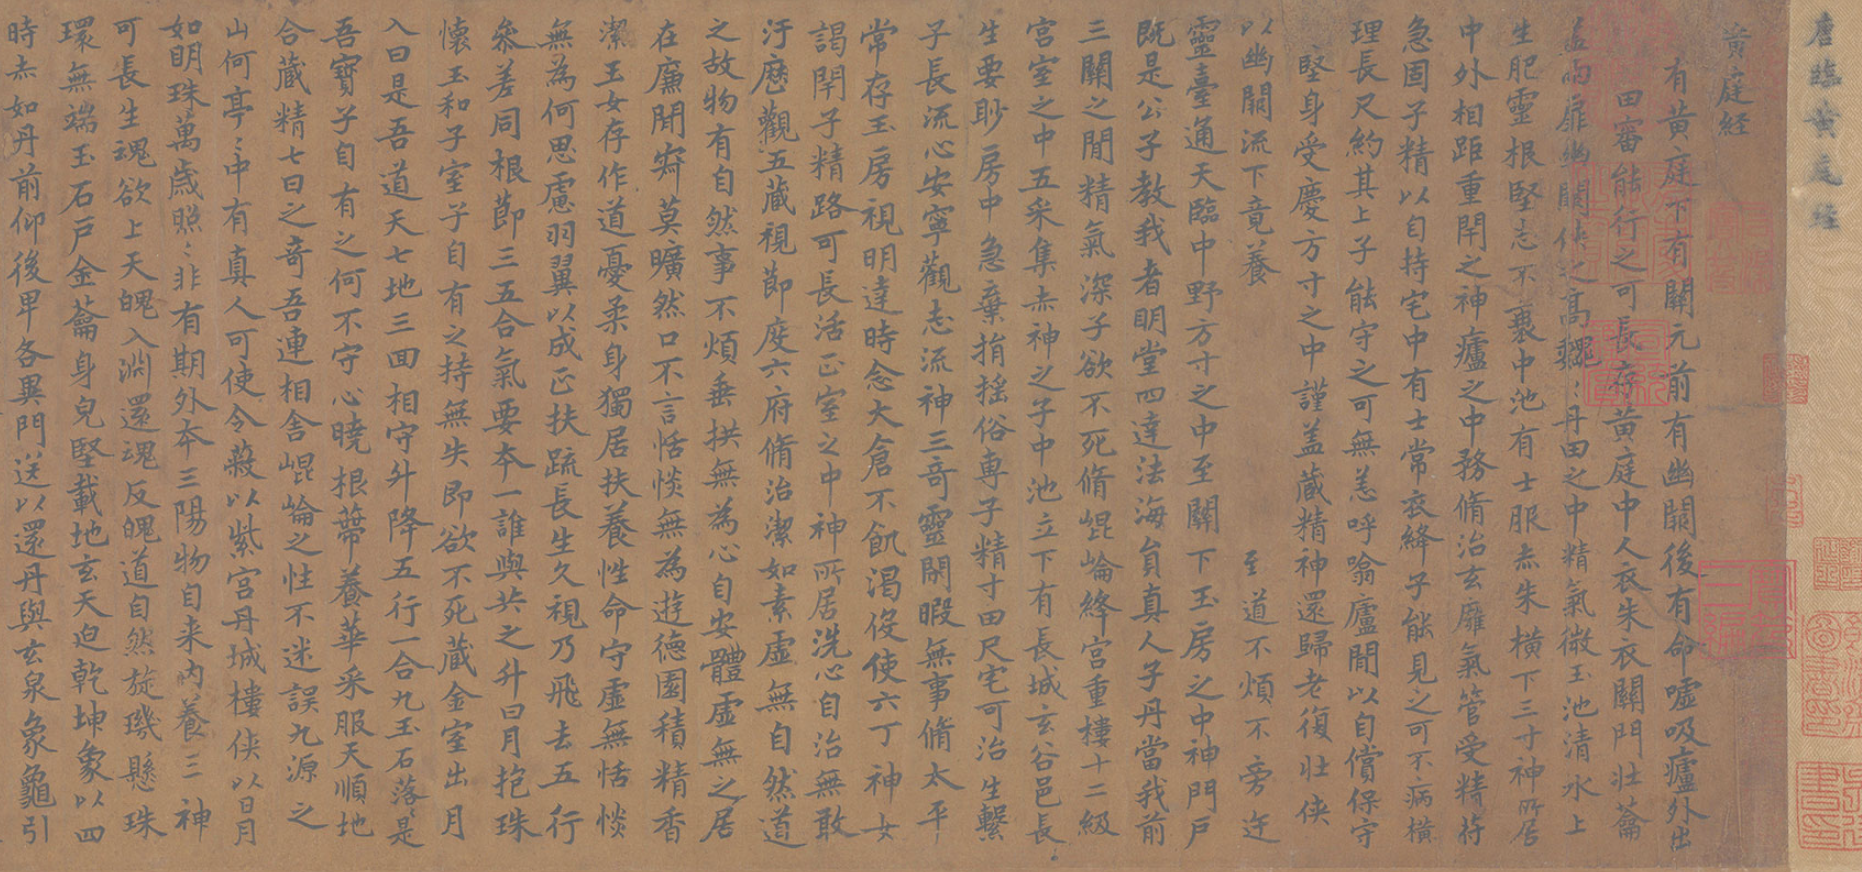 唐臨黄庭経
黄庭経
有黄庭下有關元前有幽闕後有命噓吸廬外出
田審能行之可長存黄庭中人衣朱衣關門壮蘥
盖兩扉幽闕侠之髙巍〻丹田之中精氣微玉池清水上
生肥靈根堅志不衰中池有士服赤朱横下三寸神所居
中外相距重閇之神廬之中務脩治玄㢕氣管受精苻
急固子精以自持宅中有士常衣絳子能見之可不病横
理長尺約其上子能守之可無恙呼噏廬閒以自償保守
堅身受慶方寸之中謹盖藏精神還歸老復壮侠
以幽闕流下竟養 至道不煩不旁迕
靈臺通天臨中野方寸之中至關下玉房之中神門戸
既是公子教我者眀堂四達法海貟真人子丹當我前
三關之閒精氣深子欲不死脩崐崘絳宫重樓十二級
宫室之中五采集赤神之子中池立下有長城玄谷邑長
生要眇房中急棄捐摇俗専子精寸田尺宅可治生繫
子長流心安寧觀志流神三奇靈閑暇無事脩太平
常存玉房視明達時念大倉不飢渴役使六丁神女
謁閇子精路可長活正室之中神所居洗心自治無敢
汙歴觀五藏視節度六府脩治潔如素虚無自然道
之故物有自然事不煩垂拱無為心自安體虚無之居
在廉閒寂莫曠然口不言恬惔無為遊德園積精香
潔玉女存作道憂柔身獨居扶養性命守虚無恬惔
無為何思慮羽翼以成正扶疏長生久視乃飛去五行
叅差同根莭三五合氣要夲一誰與共之升日月抱珠
懐玉和子室子自有之持無失即欲不死藏金室出月
入日是吾道天七地三回相守升降五行一合九玉石落〻是
吾寶子自有之何不守心曉根蔕養華采服天順地
合藏精七日之奇吾連相舎崐崘之性不迷誤九源之
山何亭〻中有真人可使令蔽以紫宫丹城樓侠以日月
如眀珠萬歳照〻非有期外夲三陽物自来内養三神
可長生魂欲上天魄入淵還魂反魄道自然旋璣懸珠
環無端玉石戸金蘥身皃堅載地玄天迫乾坤象以四
時赤如丹前仰後卑各異門送以還丹與玄泉象龜引